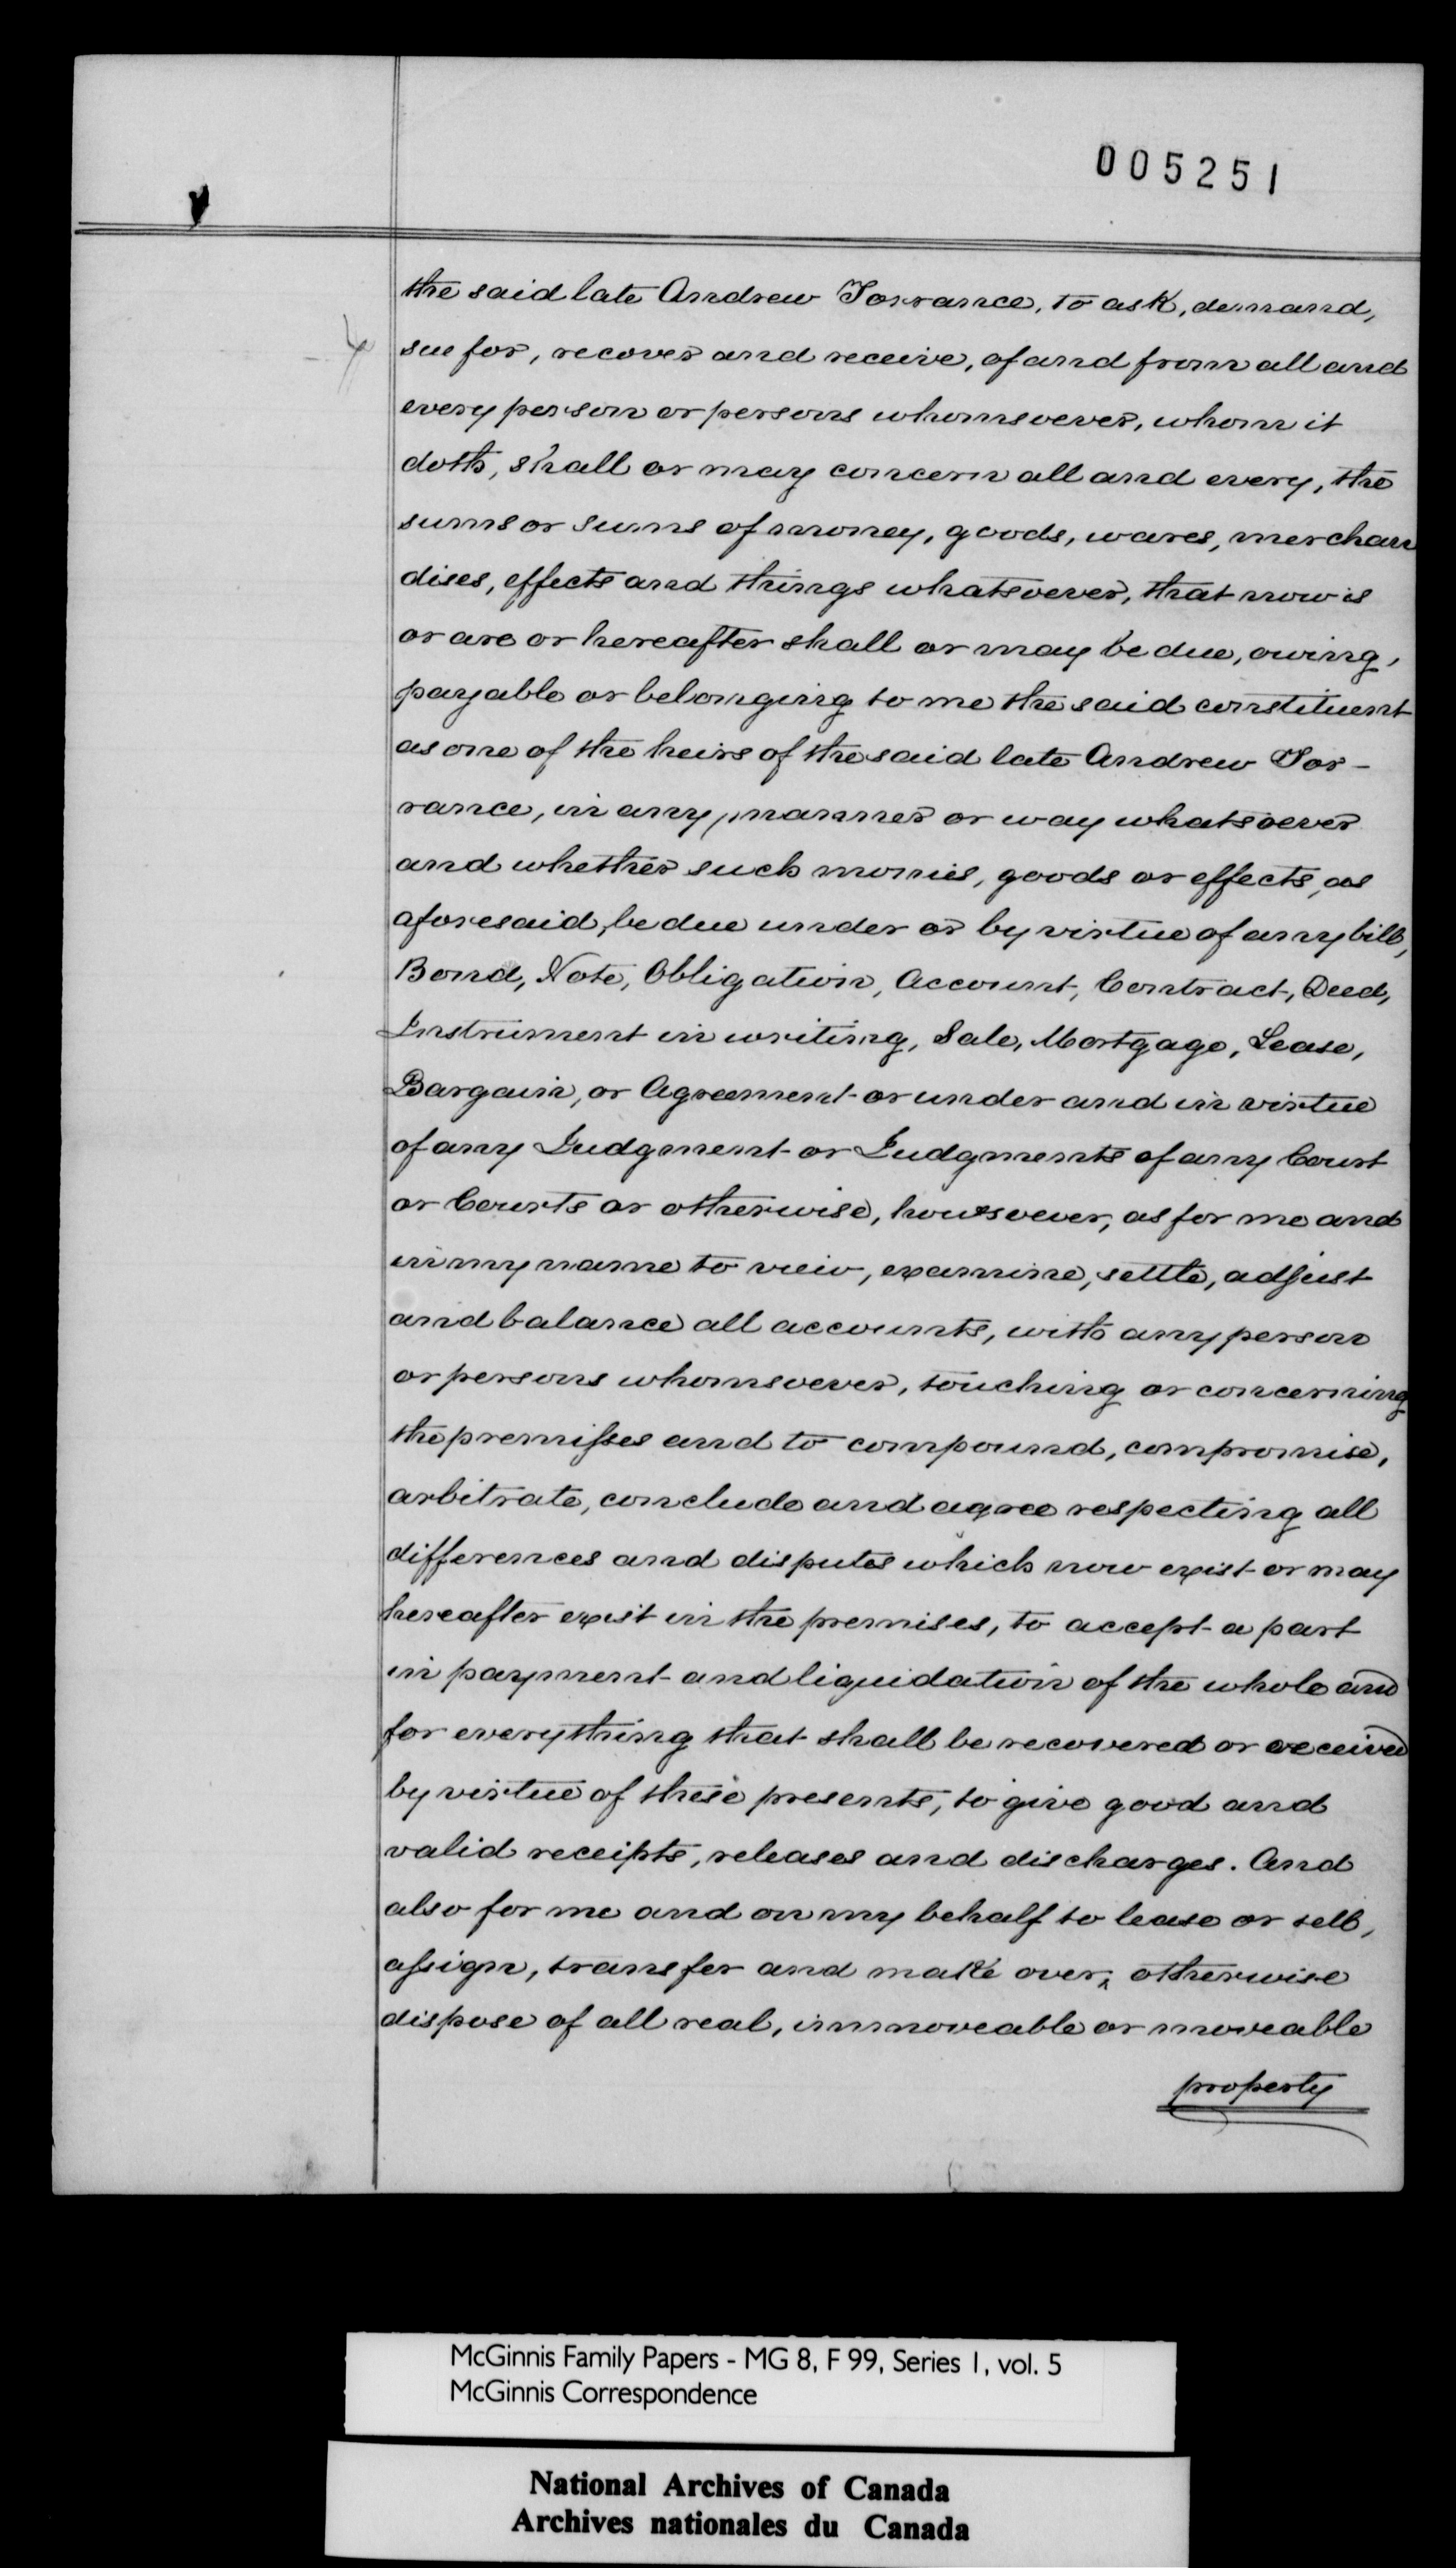 005251
the said late Andrew Torrance, to ask, demand,
sue for, recover and receive, of and from all and
every person or persons whomsoever, whom it
doth, shall or may concern all and every, the
sums or sums of money, goods, wares, merchan
dises, effects and things whatsoever, that now is
or are or hereafter shall or may be due, owing,
payable or belonging to me the said constituent
as one of the heirs of the said late Andrew Tor-
rance, in any manner or way whatsoever
and whether such monies, goods or effects, as
aforesaid, be due under or by virtue of any bill,
Bond, Note, Obligation, Account, Contract, Deed,
Instrument in writing, Sale, Mortgage, Lease,
Bargain, or Agreement or under and in virtue
of any Judgment or Judgments of any Court
or Courts or otherwise, howsoever, as for me and
in my name to view, examine, settle, adjust
and balance all accounts, with any person
or persons whomsoever, touching or concerning
the premisses and to compound, compromise,
arbitrate, conclude and agree respecting all
differences and disputes which now exist or may
hereafter exist in the premises, to accept a part
in payment and liquidation of the whole and
for everything that shall be recovered or received
by virtue of these presents, to give good and
valid receipts, releases and discharges. And
also for me and on my behalf to lease or sell,
assign, transfer and make over, otherwise
dispose of all real, immoveable or moveable
property
McGinnis Family Papers - MG 8, F 99, Series 1, vol. 5
McGinnis Correspondence
National Archives of Canada
Archives nationales du Canada